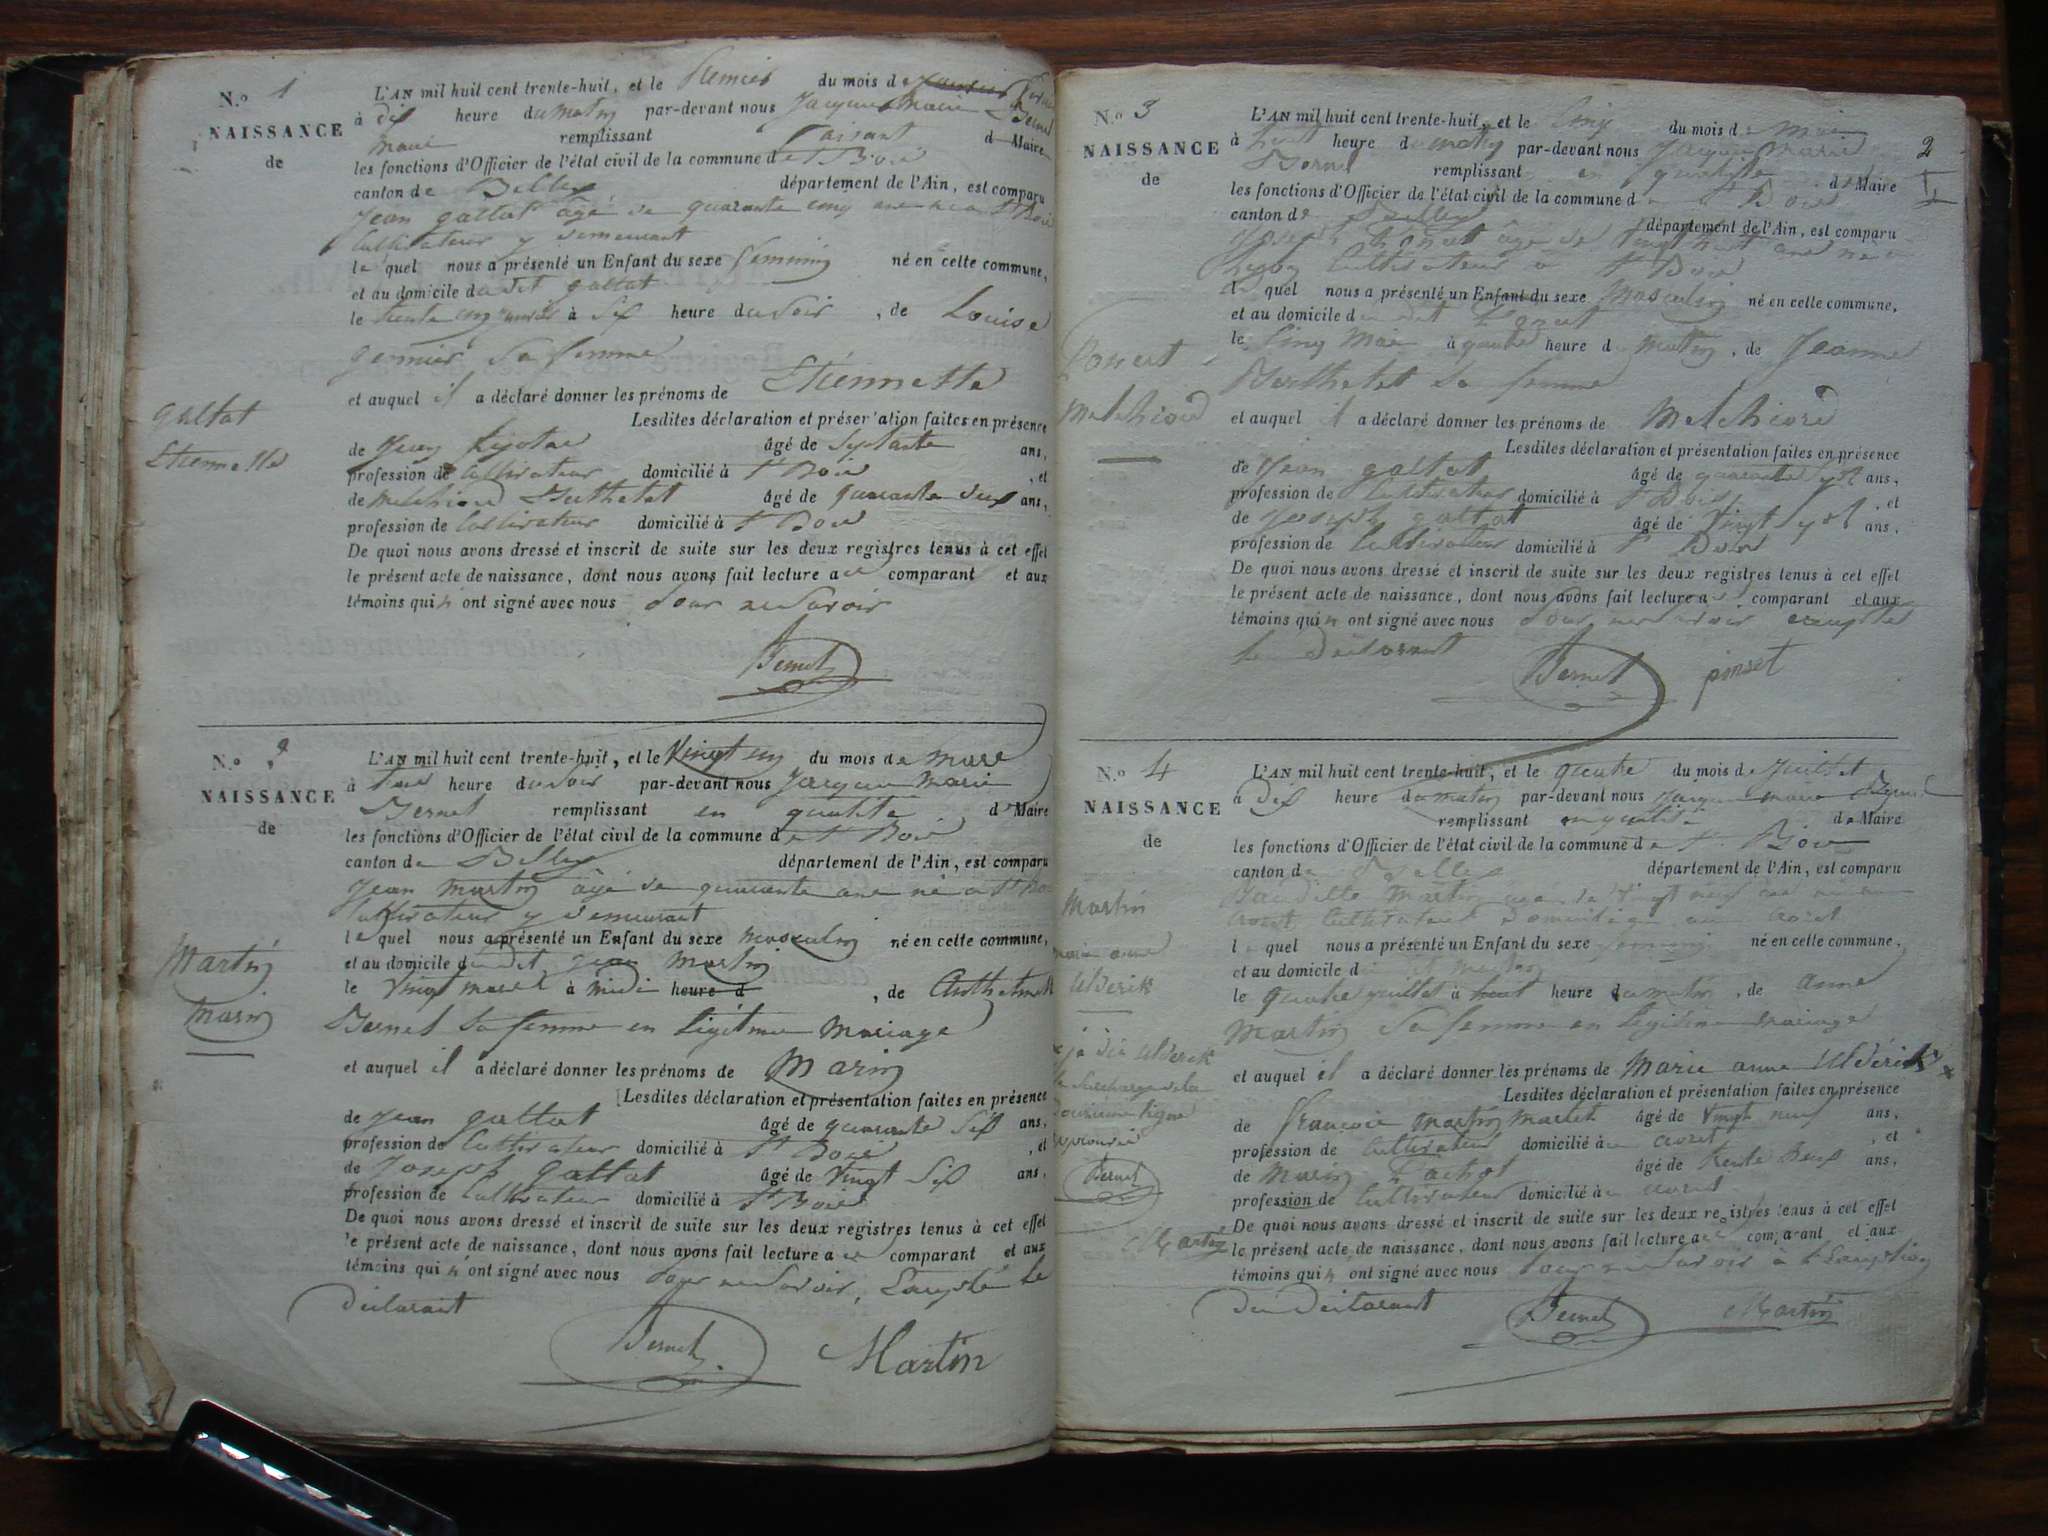 N.º 1
NAISSANCE
de
galtat
Etiennette
L'AN mil huit cent trente-huit, et le Premier du mois de
à dix heure du matin par-devant nous Jacques Marie Bernet
maire remplissant faisant d Maire
les fonctions d'Officier de l'état civil de la commune de St Bois
canton de Belley département de l'Ain, est comparu
Jean galtat âgé de quarante cinq ans né a St Bois
Cultivateur y demeurant
le quel nous a présenté un Enfant du sexe féminin né en cette commune,
et au domicile du dit galtat
le trente à six heure du soir, de Louise
sa femme
et auquel il a déclaré donner les prénoms de Etiennette
Lesdites déclaration et présentation faites en présence
de Jean âgé de septante ans,
profession de cultivateur domicilié à St Bois, et
de Melchiord Berthetet âgé de quarante deux ans,
profession de Cultivateur domicilié à St Bois
De quoi nous avons dressé et inscrit de suite sur les deux registres tenus à cet effet
le présent acte de naissance, dont nous avons fait lecture au comparant et aux
témoins qui n ont signé avec nous pour ne savoir
Bernet
N.º 2
NAISSANCE
de
Martin
Marin
L'AN mil huit cent trente-huit, et le Vingt un du mois de mars
à heure du soir par-devant nous Jacques Marie
Bernet remplissant en qualité d Maire
les fonctions d'Officier de l'état civil de la commune de St Bois
canton de Belley département de l'Ain, est comparu
Jean Martin âgé de quarante ans né a St Bois
Cultivateur y demeurant
le quel nous a présenté un Enfant du sexe masculin né en cette commune,
et au domicile du dit Jean Martin
le Vingt mars à midi heure d, de
Bernet sa femme en légitime mariage
et auquel il a déclaré donner les prénoms de Marin
Lesdites déclaration et présentation faites en présence
de Jean galtat âgé de quarante six ans,
profession de Cultivateur domicilié à St Bois, et
de Joseph Galtat âgé de Vingt six ans,
profession de Cultivateur domicilié à St Bois
De quoi nous avons dressé et inscrit de suite sur les deux registres tenus à cet effet
le présent acte de naissance, dont nous avons fait lecture au comparant et aux
témoins qui n ont signé avec nous pour ne savoir, Excepté le
déclarant
Bernet Martin
2
N.º 3
NAISSANCE
de
Ponset
Melchiord
L'AN mil huit cent trente-huit, et le Cinq du mois de Mai
à heure du matin par-devant nous Jacques Marie
Bernet remplissant en qualité d Maire
les fonctions d'Officier de l'état civil de la commune de St Bois
canton de Belley département de l'Ain, est comparu
Joseph Ponset âgé de Vingt huit ans né a
Cultivateur a St Bois
le quel nous a présenté un Enfant du sexe Masculin né en cette commune,
et au domicile du dit Ponset
le Cinq Mai à quatre heure d matin, de Jeanne
Berthetet sa femme
et auquel il a déclaré donner les prénoms de Melchiord
Lesdites déclaration et présentation faites en présence
de Jean galtat âgé de quarante six ans,
profession de Cultivateur domicilié à St Bois, et
de Joseph galtat âgé de Vingt six ans,
profession de Cultivateur domicilié à St Bois
De quoi nous avons dressé et inscrit de suite sur les deux registres tenus à cet effet
le présent acte de naissance, dont nous avons fait lecture au comparant et aux
témoins qui n ont signé avec nous pour ne savoir excepté
le déclarant
Bernet ponset
N.º 4
NAISSANCE
de
Martin
marie anne
Uldérick
Bernet
Martin
L'AN mil huit cent trente-huit, et le quatre du mois de Juillet
à dix heure du matin par-devant nous Jacques Marie Bernet
remplissant en qualité de Maire
les fonctions d'Officier de l'état civil de la commune de St Bois
canton de Belley département de l'Ain, est comparu
Martin âgé de Vingt neuf ans
cultivateur
l quel nous a présenté un Enfant du sexe féminin né en cette commune,
et au domicile d
le quatre juillet à huit heure du matin, de anne
Martin sa femme en légitime mariage
et auquel il a déclaré donner les prénoms de Marie anne Uldérick
Lesdites déclaration et présentation faites en présence
de François Martin âgé de Vingt neuf ans,
profession de Cultivateur domicilié à, et
de Marin âgé de trente deux ans,
profession de Cultivateur domicilié à
De quoi nous avons dressé et inscrit de suite sur les deux registres tenus à cet effet
le présent acte de naissance, dont nous avons fait lecture au comparant et aux
témoins qui n ont signé avec nous pour ne savoir à l'Exception
du déclarant
Bernet Martin